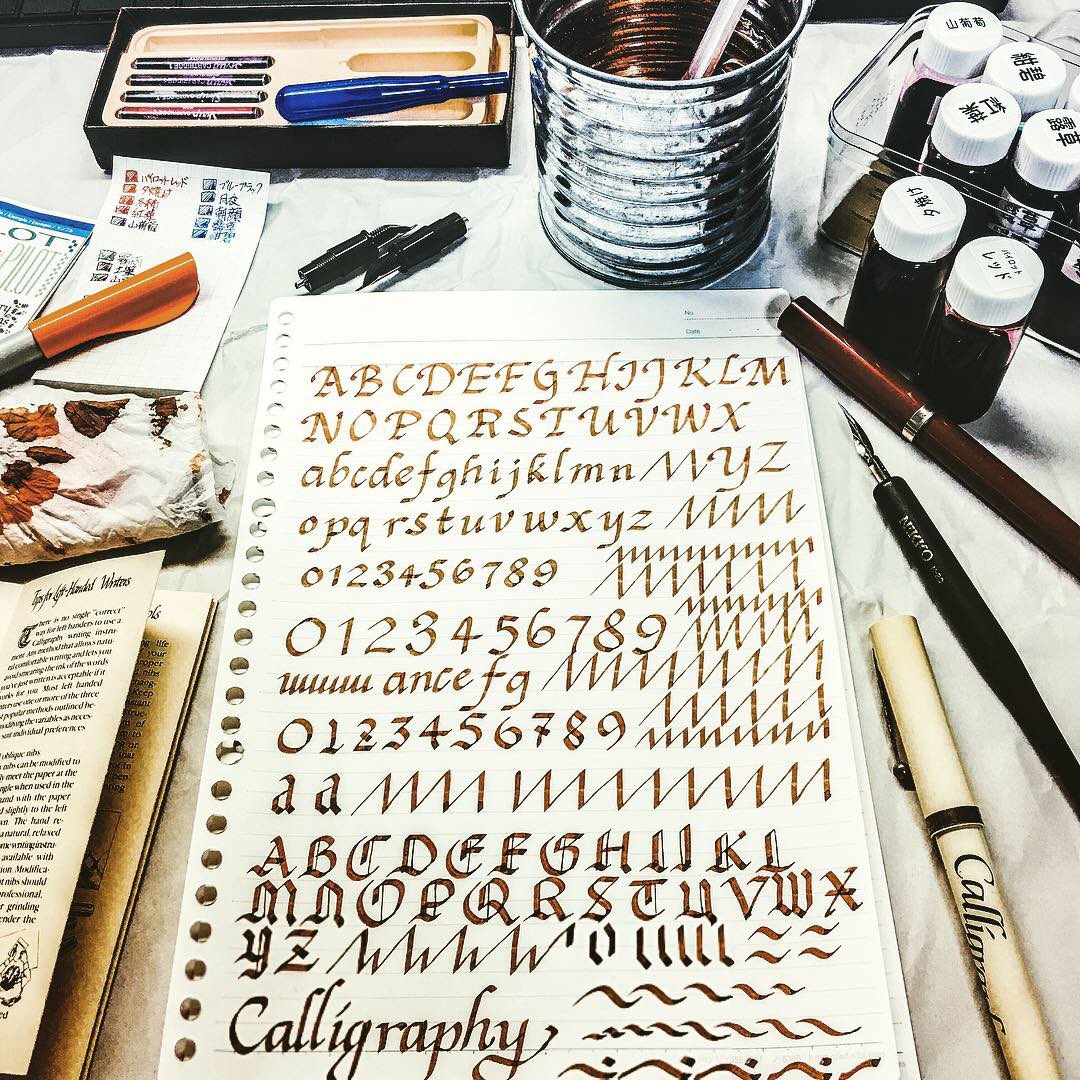 山葡萄
紺碧
紅葉
露草
夕焼け
パイロット
レッド
パイロットレッド
夕焼け
冬柿
紅葉
山葡萄
ブルーブラック
月夜
朝顔
露草
紺碧
PILOT
No.
Date
ABCDEFGHIJKLM
NOPQRSTUVWX
abcdefghijklmn YZ
opqrstuvwxyz
0123456789
0123456789
ance fg
0123456789
aa
ABCDEFGHIJKL
MNOPQRSTUVWX
YZ
Calligraphy
NIKKO
Calligra
Tips for Left-Handed Writers
There is no single "correct"
way for left handers to use a
calligraphy writing instru-
ment. Any method that allows natu-
ral comfortable writing and lets you
avoid smearing the ink of the words
you've just written is acceptable if it
works for you. Most left handed
writers use one or more of the three
most popular methods outlined be-
modifying the variables as neces-
suit individual preferences
oblique nibs.
nibs can be modified to
meet the paper at the
angle when used in the
hand with the paper
slightly to the left
The hand re-
a natural, relaxed
some writing instru-
available with
Modifica-
nibs should
professional,
grinding
render the